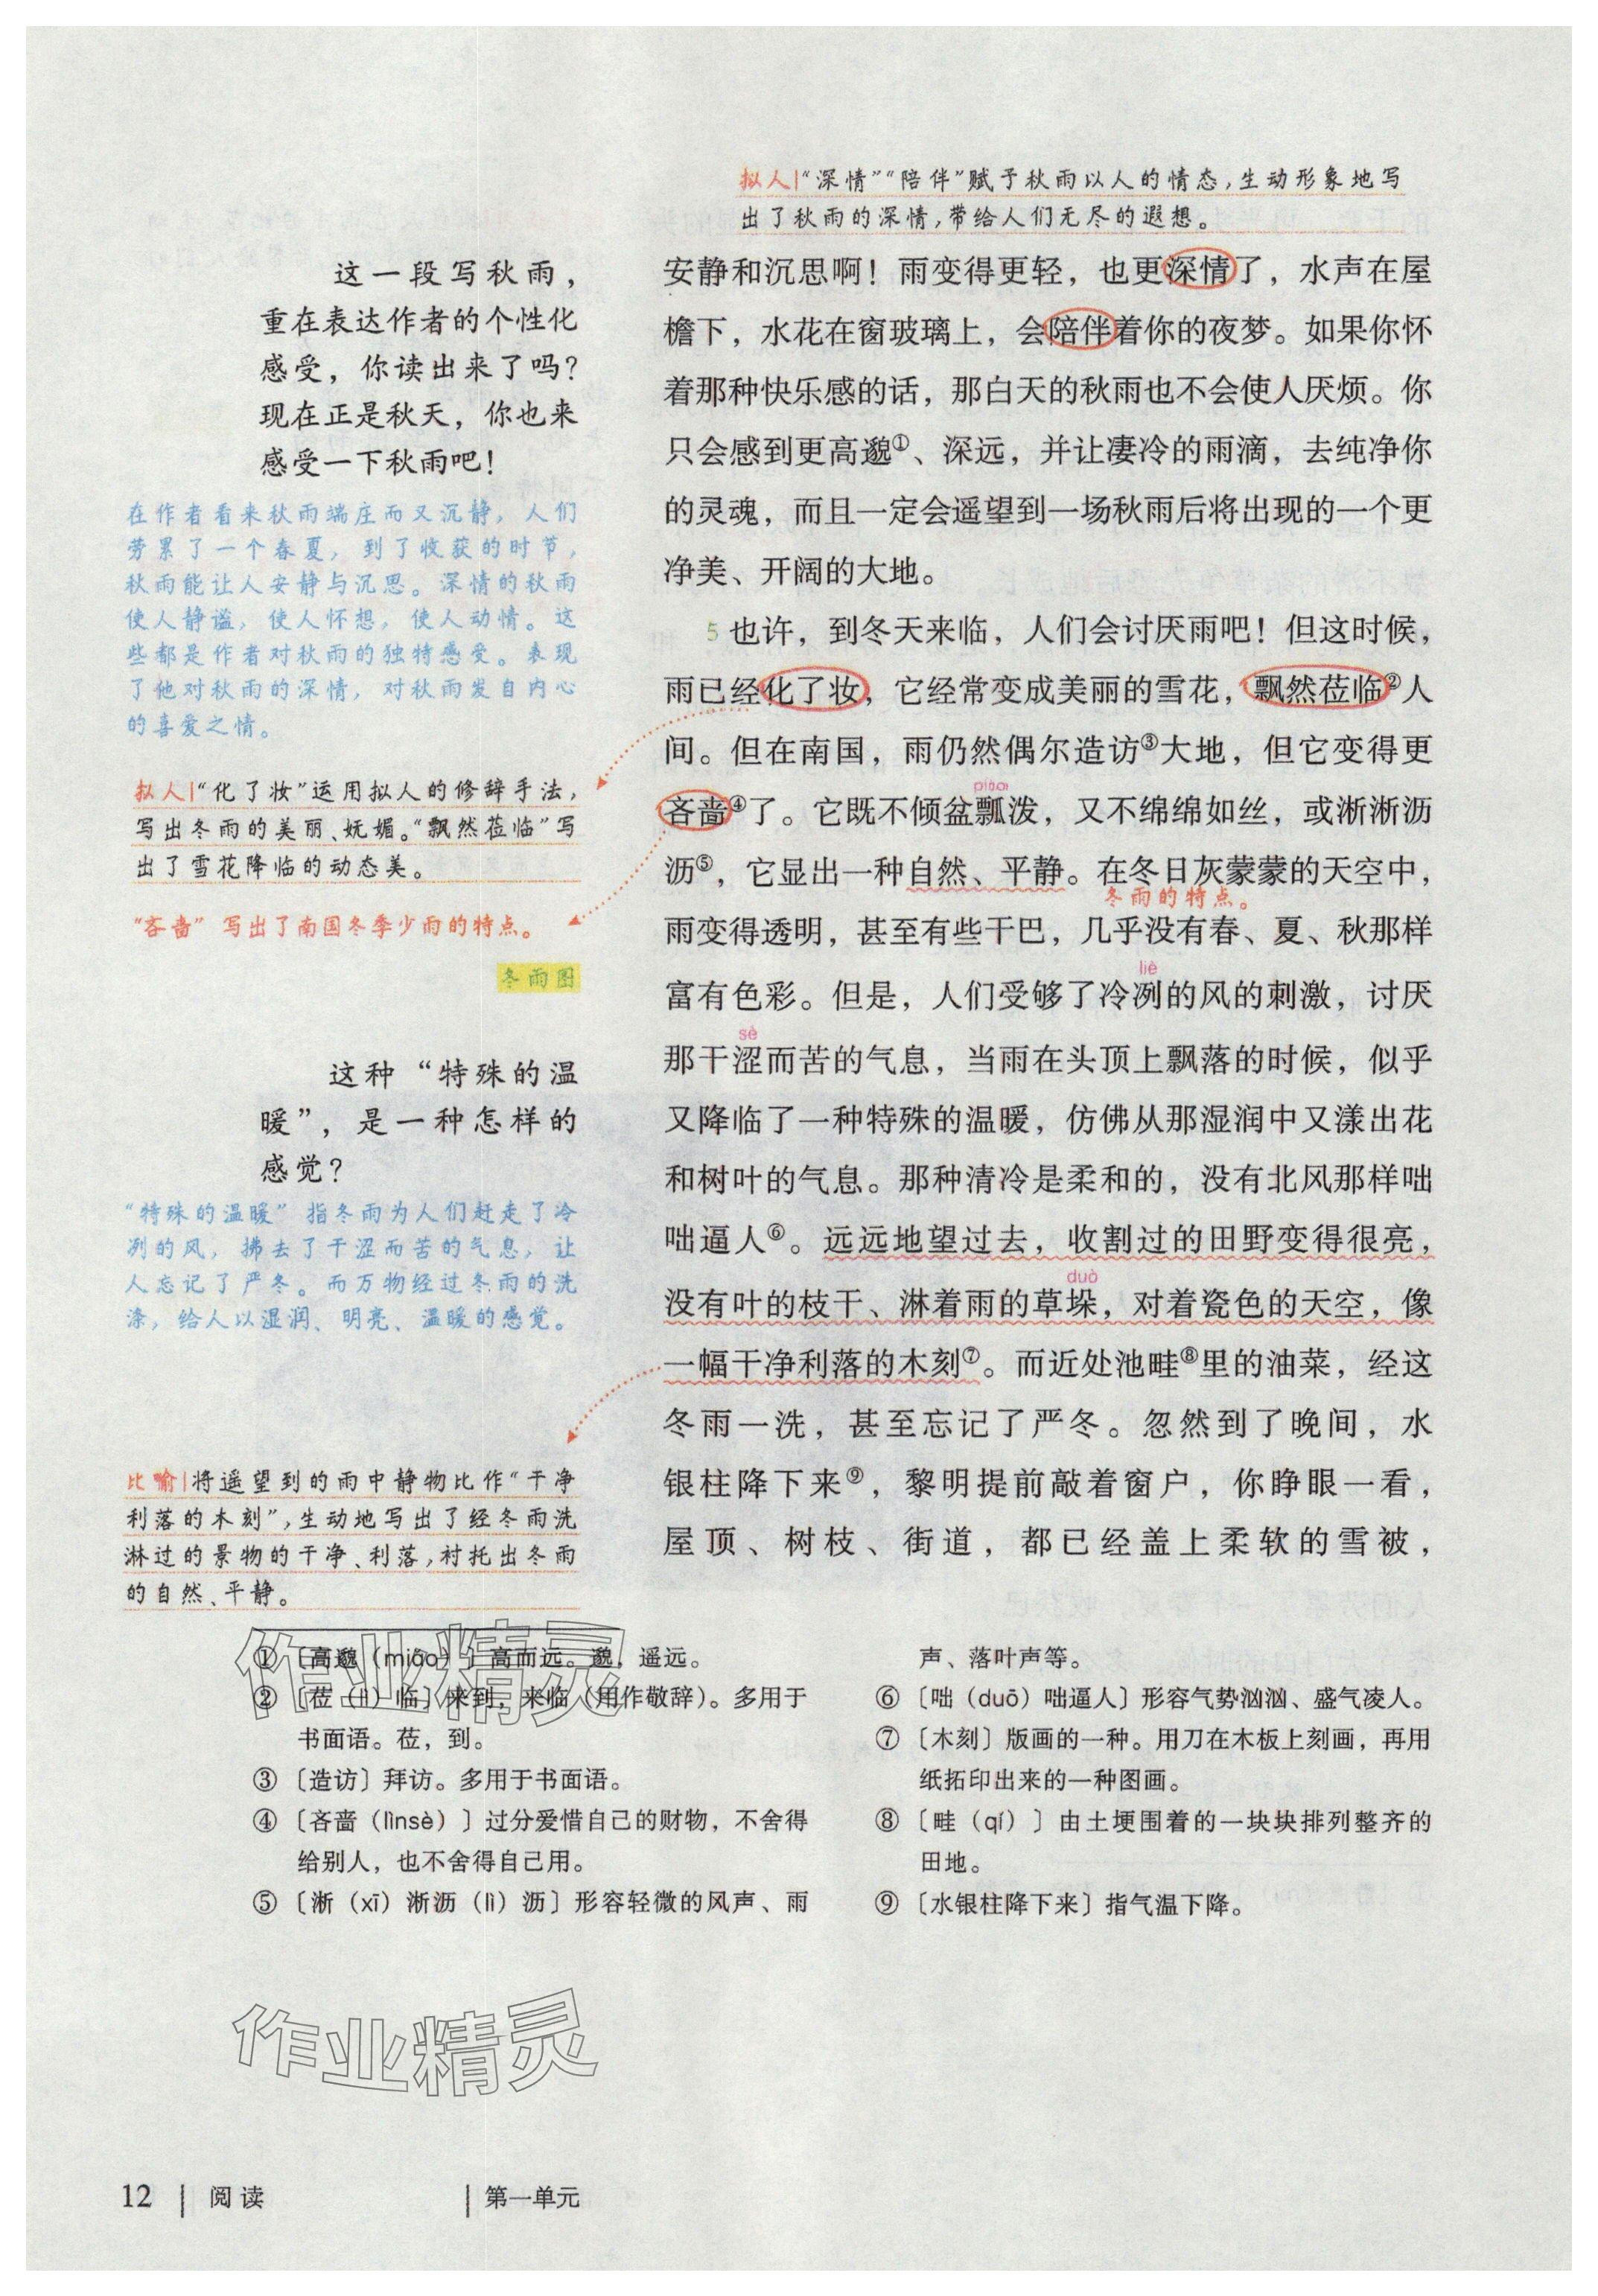 拟人|“深情”“陪伴”赋予秋雨以人的情态，生动形象地写
出了秋雨的深情，带给人们无尽的遐想。
安静和沉思啊！雨变得更轻，也更深情了，水声在屋
檐下，水花在窗玻璃上，会陪伴着你的夜梦。如果你怀
着那种快乐感的话，那白天的秋雨也不会使人厌烦。你
只会感到更高邈①、深远，并让凄冷的雨滴，去纯净你
的灵魂，而且一定会遥望到一场秋雨后将出现的一个更
净美、开阔的大地。
5 也许，到冬天来临，人们会讨厌雨吧！但这时候，
雨已经化了妆，它经常变成美丽的雪花，飘然莅临②人
间。但在南国，雨仍然偶尔造访③大地，但它变得更
piáo
吝啬④了。它既不倾盆瓢泼，又不绵绵如丝，或淅淅沥
沥⑤，它显出一种自然、平静。在冬日灰蒙蒙的天空中，
冬雨的特点。
雨变得透明，甚至有些干巴，几乎没有春、夏、秋那样
liè
富有色彩。但是，人们受够了冷冽的风的刺激，讨厌
sè
那干涩而苦的气息，当雨在头顶上飘落的时候，似乎
又降临了一种特殊的温暖，仿佛从那湿润中又漾出花
和树叶的气息。那种清冷是柔和的，没有北风那样咄
咄逼人⑥。远远地望过去，收割过的田野变得很亮，
duò
没有叶的枝干、淋着雨的草垛，对着瓷色的天空，像
一幅干净利落的木刻⑦。而近处池畦⑧里的油菜，经这
冬雨一洗，甚至忘记了严冬。忽然到了晚间，水
银柱降下来⑨，黎明提前敲着窗户，你睁眼一看，
屋顶、树枝、街道，都已经盖上柔软的雪被，
这一段写秋雨，
重在表达作者的个性化
感受，你读出来了吗？
现在正是秋天，你也来
感受一下秋雨吧！
在作者看来秋雨端庄而又沉静，人们
劳累了一个春夏，到了收获的时节，
秋雨能让人安静与沉思。深情的秋雨
使人静谧，使人怀想，使人动情。这
些都是作者对秋雨的独特感受。表现
了他对秋雨的深情，对秋雨发自内心
的喜爱之情。
拟人|“化了妆”运用拟人的修辞手法，
写出冬雨的美丽、妩媚。“飘然莅临”写
出了雪花降临的动态美。
“吝啬”写出了南国冬季少雨的特点。
冬雨图
这种“特殊的温
暖”，是一种怎样的
感觉？
“特殊的温暖”指冬雨为人们赶走了冷
冽的风，拂去了干涩而苦的气息，让
人忘记了严冬。而万物经过冬雨的洗
涤，给人以湿润、明亮、温暖的感觉。
比喻|将遥望到的雨中静物比作“干净
利落的木刻”，生动地写出了经冬雨洗
淋过的景物的干净、利落，衬托出冬雨
的自然、平静。
作业精灵
①〔高邈（miǎo）〕高而远。邈，遥远。
②〔莅（lì）临〕来到，来临（用作敬辞）。多用于
书面语。莅，到。
③〔造访〕拜访。多用于书面语。
④〔吝啬（lìnsè）〕过分爱惜自己的财物，不舍得
给别人，也不舍得自己用。
⑤〔淅（xī）淅沥（lì）沥〕形容轻微的风声、雨
声、落叶声等。
⑥〔咄（duō）咄逼人〕形容气势汹汹、盛气凌人。
⑦〔木刻〕版画的一种。用刀在木板上刻画，再用
纸拓印出来的一种图画。
⑧〔畦（qí）〕由土埂围着的一块块排列整齐的
田地。
⑨〔水银柱降下来〕指气温下降。
作业精灵
12 | 阅读 | 第一单元